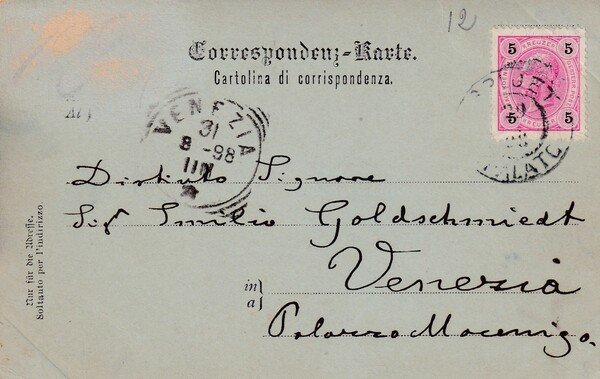 12
5 KREUZER 5
5 5
Correspondenz-Karte.
Cartolina di corrispondenza.
VENEZIA
31
8 -98
11N
Distinto Signore
Sigr Emilio Goldschmiedt
in
a
Venezia
Palazzo Mocenigo.
Nur für die Adresse.
Soltanto per l'indirizzo.